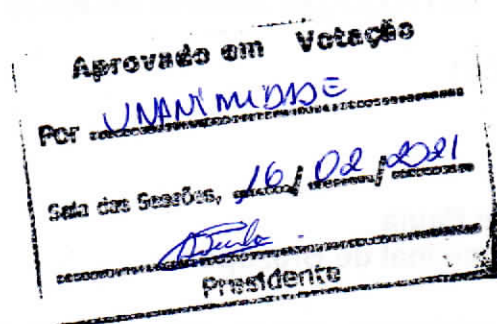 Aprovado em Votação
Por UNANIMIDADE
Sala das Sessões, 16/02/2021
Presidente